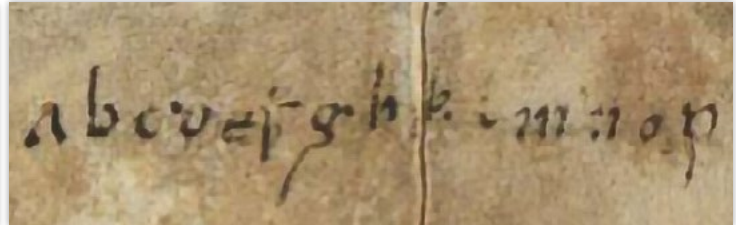 a b c d e f g h k m n o p